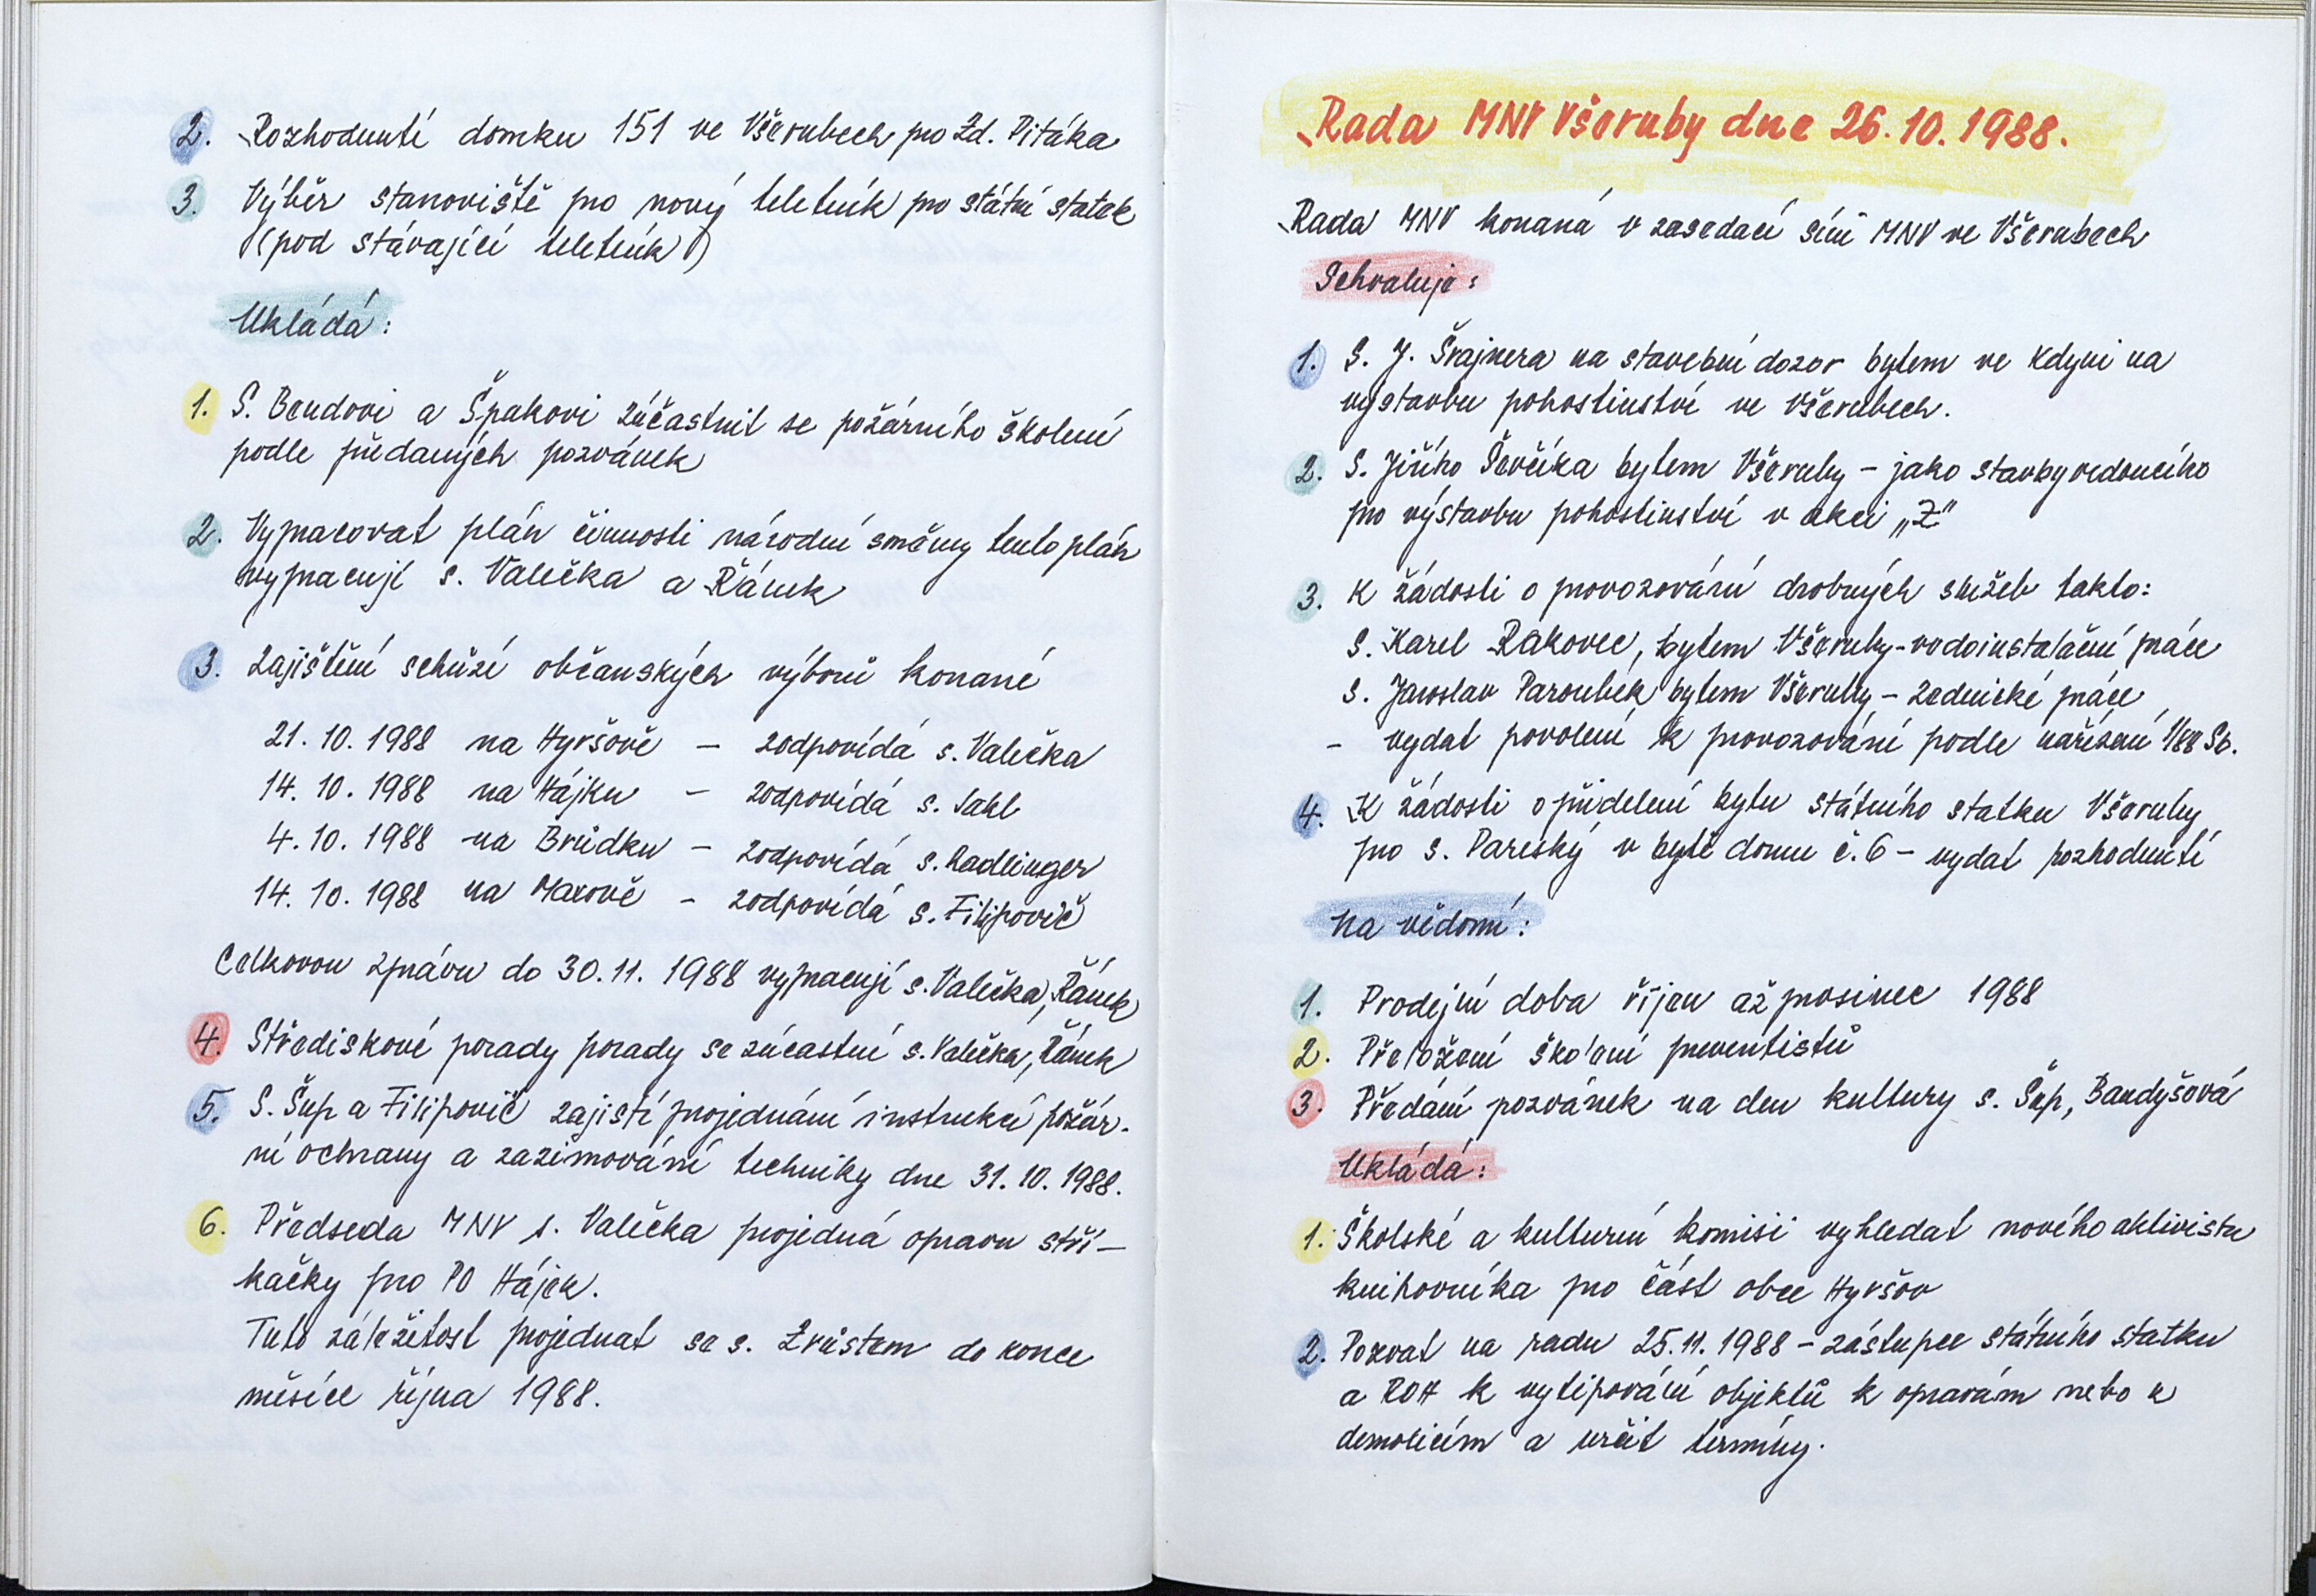 2. Rozhodnutí domku 151 ve Všerubech pro Zd. Pitáka
3. Výběr stanoviště pro nový teletník pro státní statek
(pod stávající teletník)
Ukládá:
1. S. Bendovi a Špakovi zúčastnit se požárního školení
podle předaných pozvánek
2. Vypracovat plán činnosti národní směny tento plán
vypracují s. Valečka a Řánek
3. Zajištění schůzí občanských výborů konané
21. 10. 1988 na Hyršově – zodpovídá s. Valečka
14. 10. 1988 na Hájku – zodpovídá s. Sahl
4. 10. 1988 na Brůdku – zodpovídá s. Radlinger
14. 10. 1988 na Maxově – zodpovídá s. Filipovič
Celkovou zprávu do 30. 11. 1988 vypracují s. Valečka, Řánek
4. Střediskové porady porady se zúčastní s. Valečka, Řánek
5. S. Šup a Filipovič zajistí projednání instrukcí požár-
ní ochrany a zazimování techniky dne 31. 10. 1988.
6. Předseda MNV s. Valečka projedná opravu stří-
kačky pro PO Hájek.
Tuto záležitost projednat se s. Zrůstem do konce
měsíce října 1988.
Rada MNV Všeruby dne 26. 10. 1988.
Rada MNV konaná v zasedací síni MNV ve Všerubech
Schvaluje:
1. S. J. Švajnera na stavební dozor bytem ve Kdyni na
výstavbu pohostinství ve Všerubech.
2. S. Jiřího Ševčíka bytem Všeruby – jako stavbyvedoucího
pro výstavbu pohostinství v akci „Z"
3. K žádosti o provozování drobných služeb takto:
S. Karel Rakovec, bytem Všeruby - vodoinstalační práce
S. Jaroslav Paroubek bytem Všeruby – zednické práce
– vydat povolení k provozování podle nařízení 1/88 Sb.
4. K žádosti o přidelení bytu státního statku Všeruby
pro s. Pareský v bytě domu č. 6 – vydat rozhodnutí
Na vědomí:
1. Prodejní doba říjen až prosinec 1988
2. Přeložení školení preventistů
3. Předání pozvánek na den kultury s. Šup, Bandyšová
Ukládá:
1. Školské a kulturní komisi vyhledat nového aktivistu
knihovníka pro část obce Hyršov
2. Pozvat na radu 25. 11. 1988 – zástupce státního statku
a ROH k vytipování objektů k opravám nebo k
demolicím a určit termíny.